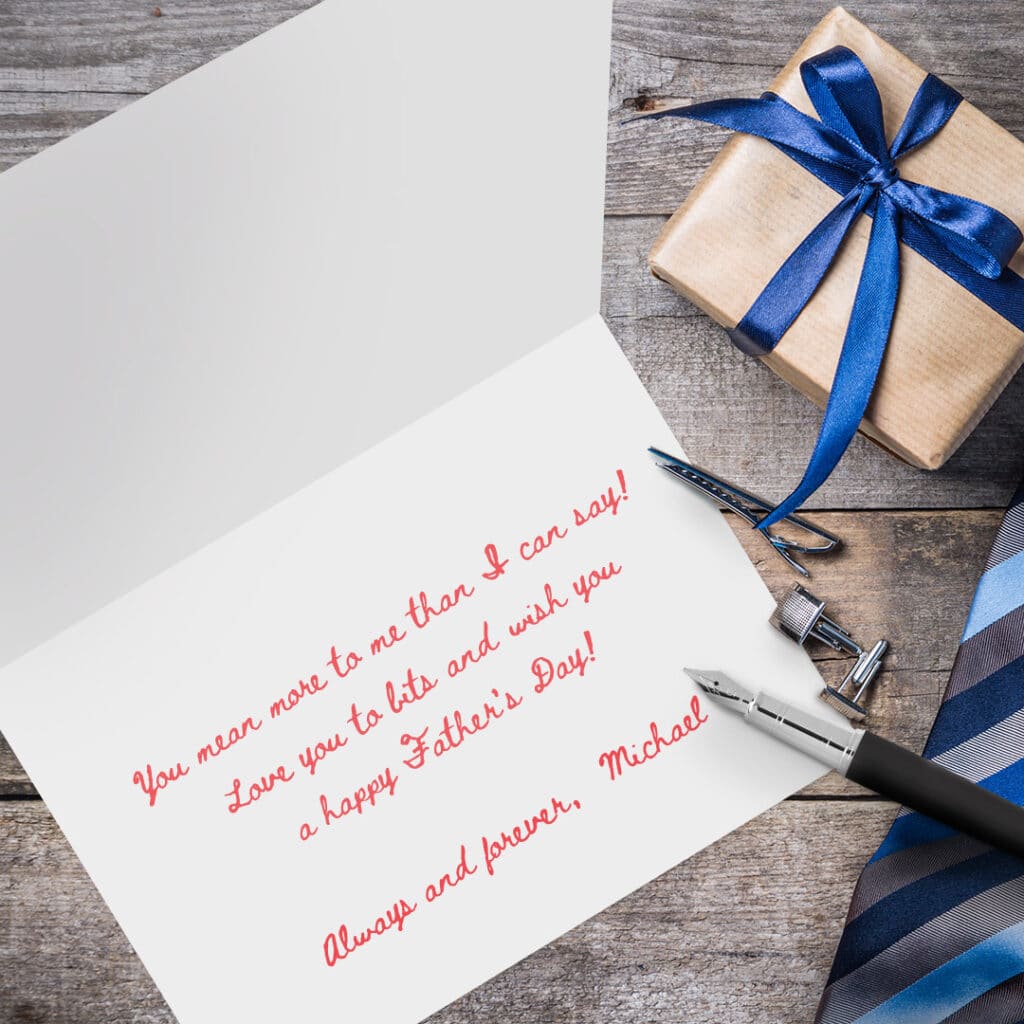 You mean more to me than I can say!
Love you to bits and wish you
a happy Father's Day!
Always and forever, Michael